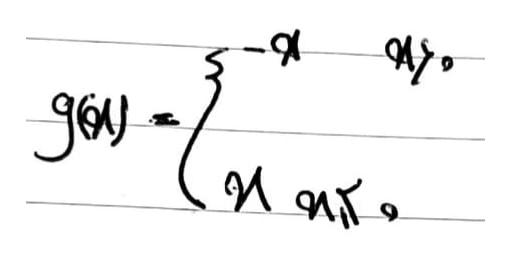 g(x) = { -x x > 0
x x ≤ 0